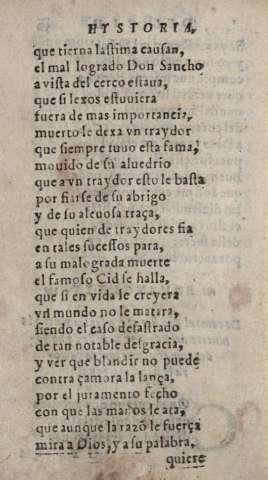 HYSTORIA,
que tierna lastima causan,
el mal logrado Don Sancho
a vista del cerco estaua,
que si lexos estuuiera
fuera de mas importancia,
muerto le dexa vn traydor
que siempre tuuo esta fama,
mouido de su aluedrio
que a vn traydor esto le basta
por fiarse de su abrigo
y de su aleuosa traça,
que quien de traydores fia
en tales sucessos para,
a su malograda muerte
el famoso Cid se halla,
que si en vida le creyera
vn mundo no le matara,
siendo el caso desastrado
de tan notable desgracia,
y ver que blandir no puede
contra çamora la lança,
por el juramento fecho
con que las manos le ata,
que aunque la razõ le fuerça
mira a Dios, y a su palabra,
quiere